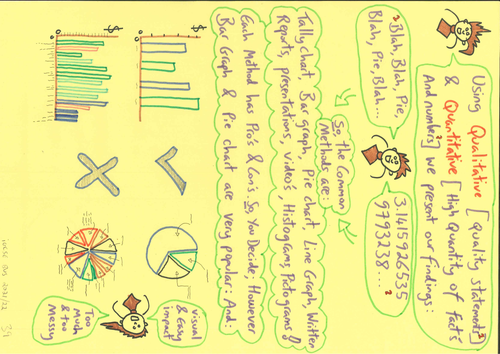 Using Qualitative [quality statement]
& Quantitative [High Quantity of fact's
And numbers]² we present our findings:
Blah, Blah, Pie,
Blah, Pie, Blah...
3.1415926535
9793238... ²
So, the Common
Methods are:
Tally chart, Bar graph, Pie chart, Line Graph, Written
Reports, presentations, video's, Histograms, Pictograms &
Each Method has Pro's & Con's So, You Decide, However
Bar Graph & Pie chart are very popular: And:
$
0
visual
& Easy
impact
$
0
Too
Much
& too
Messy